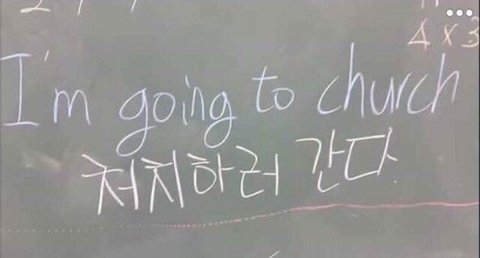 4 x 3
I'm going to church
처치하러 간다